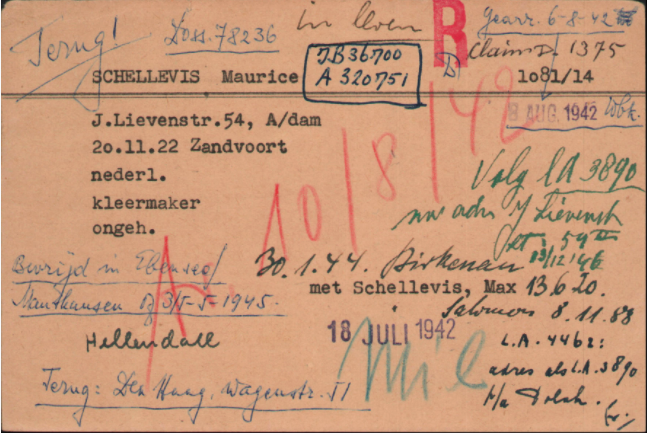 in leven
Gearr. 6-8-42
Terug!
Doss. 78236
R
J.B 36.700
A 320751
Claims. 1375
SCHELLEVIS Maurice
1o81/14
8 AUG. 1942 Wbk.
J.Lievenstr.54, A/dam
2o.11.22 Zandvoort
nederl.
kleermaker
ongeh.
10/8/42
Volg LA 3890
adr. J Lievenstr
54 II
13/12/46
Bevrijd in Ebensee/
Mauthausen op 3/5-5-1945.
30.1.44. Birkenau
met Schellevis, Max 13.6.20.
Salomon 8.11.88
Hellendall
18 JULI 1942
Mil
L.A. 4462:
adres als L.A. 3890
h/a Polak.
Terug: Den Haag, Wagenstr. 51